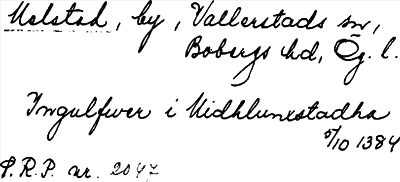 Melstad, by, Vallerstads sn,
Bobergs hd, Ög. l.
Ingulfwer i Midhlunxstadha
5/10 1384
S.R.P. nr. 2047